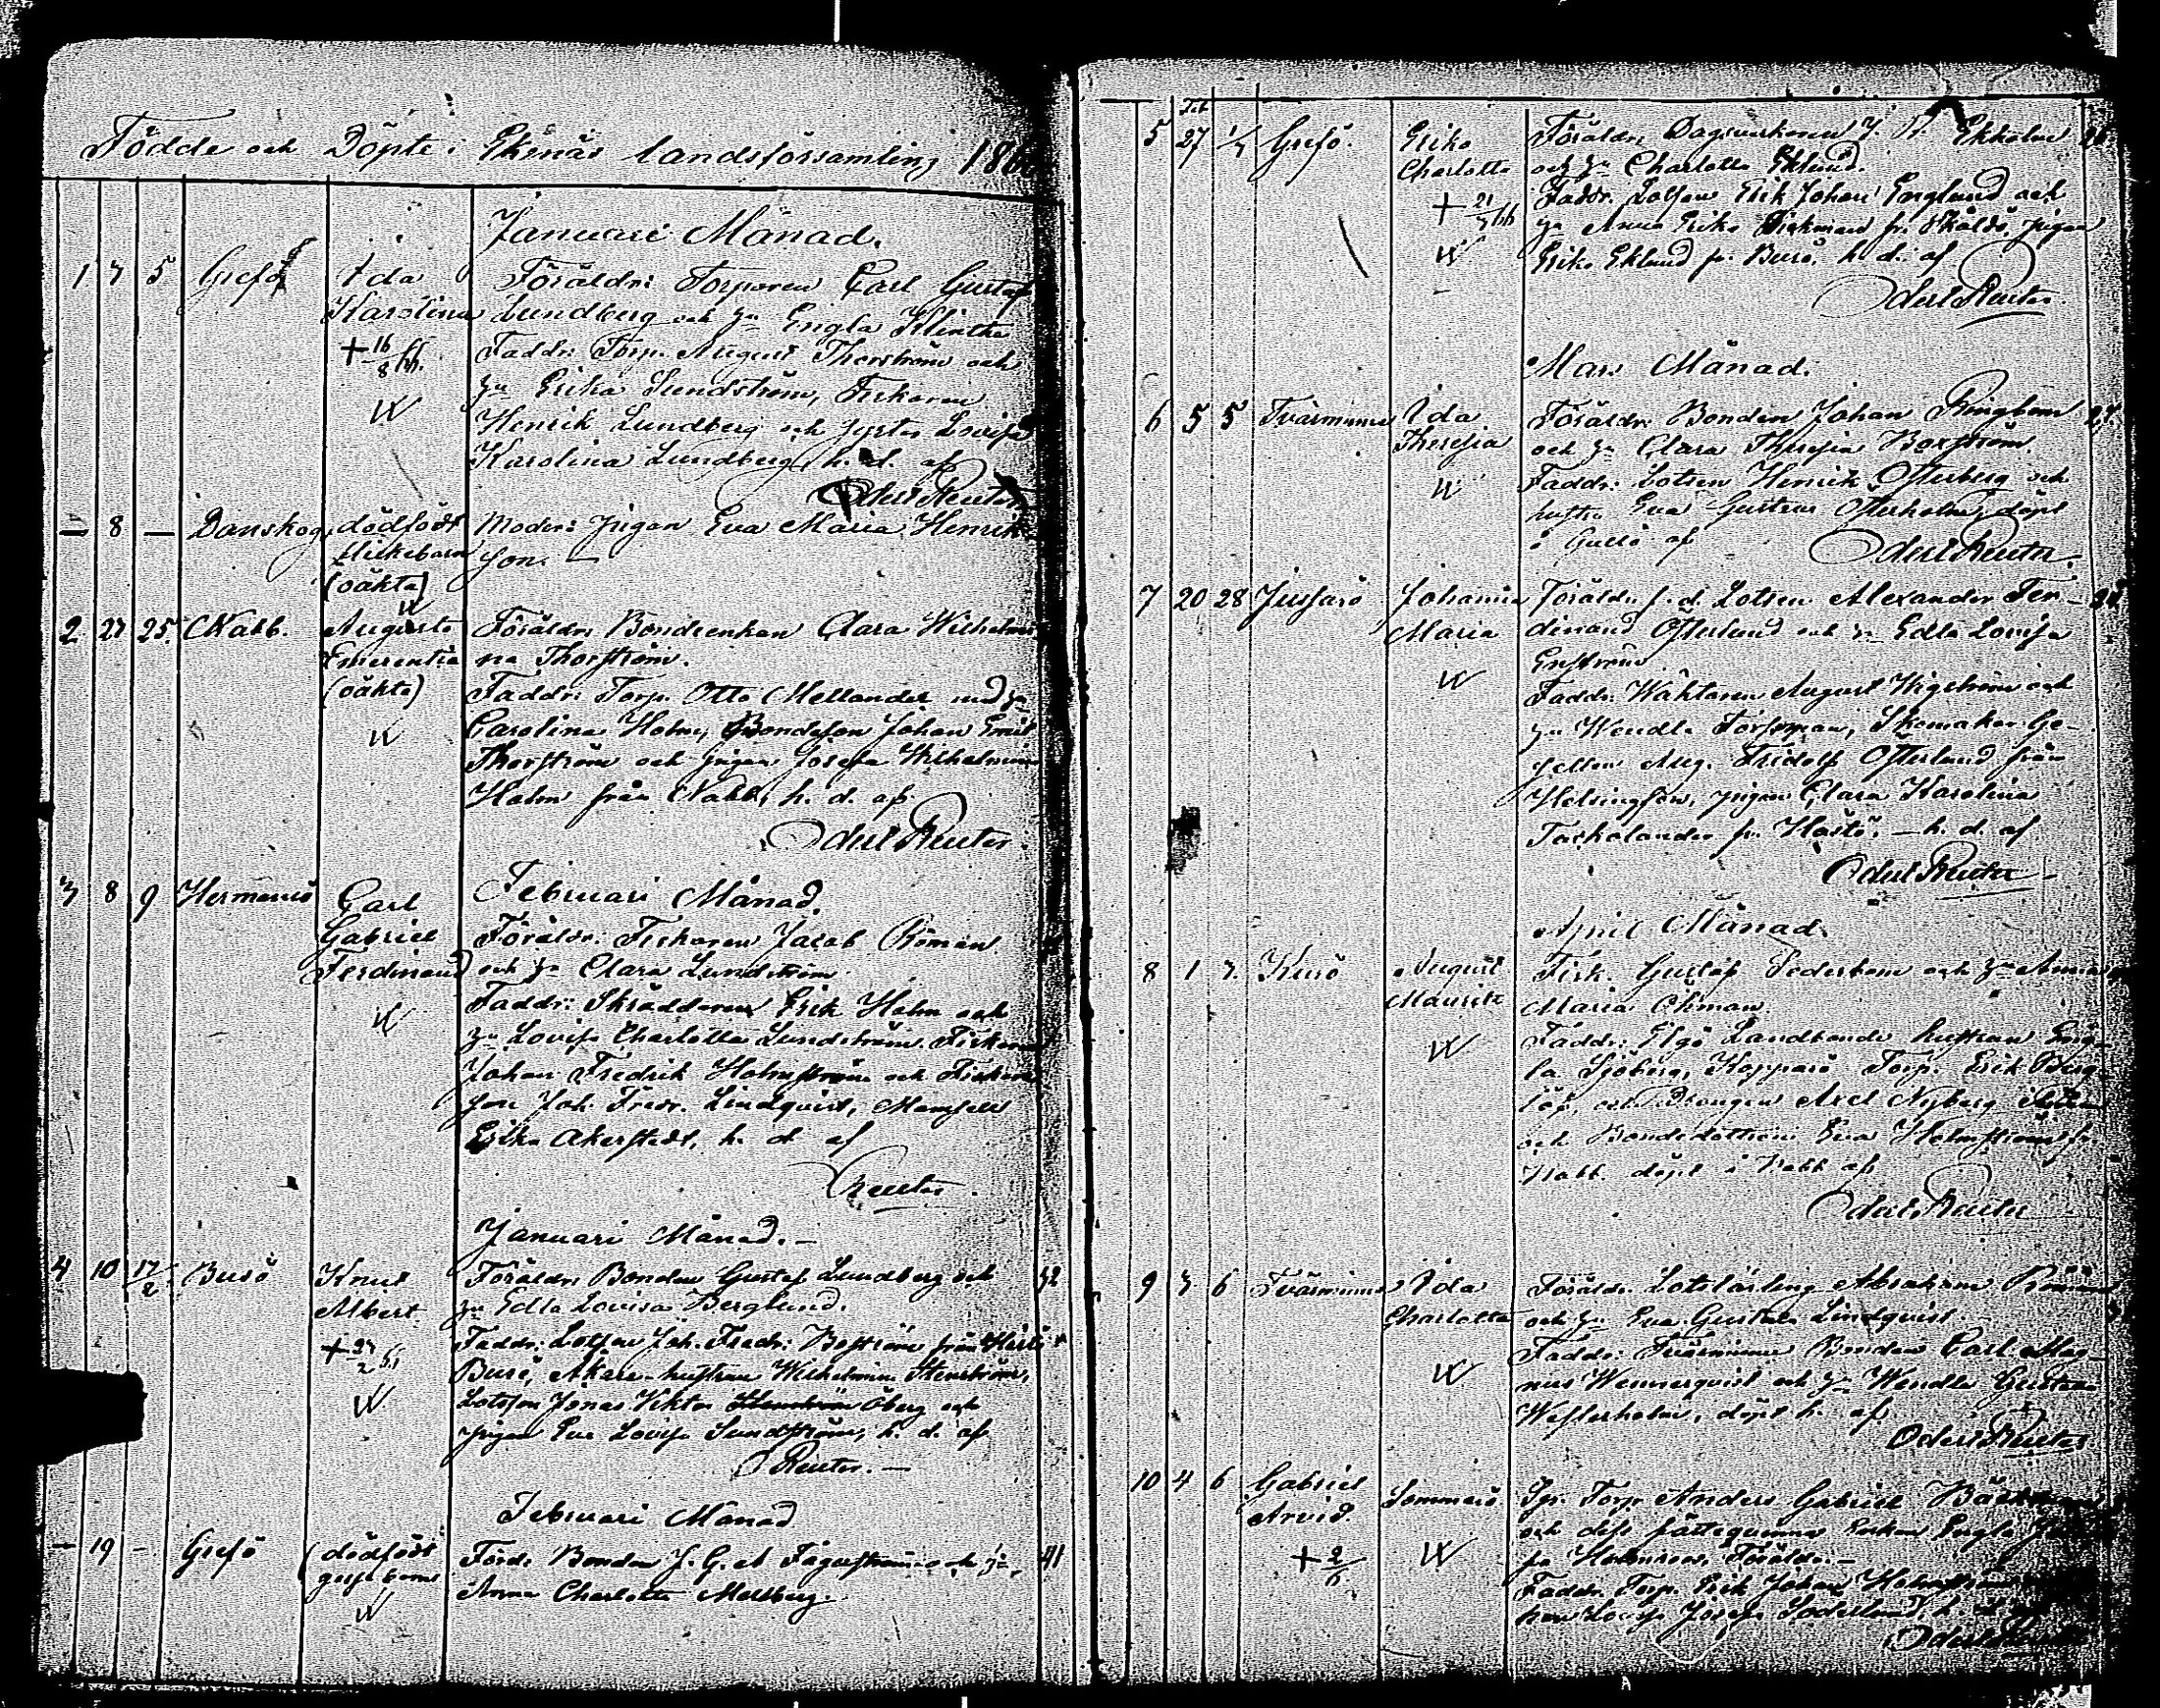 Födde och Döpte i Ekenäs landsförsamling
Januari Månad.
1 7 5 Grefö Ida Föräldr: Torparen Carl Gustaf
Karolina Lundberg och hu Engla
+ 16/8 Faddr: Torp. August Thorström och
hu Erika Sundström, Fiskaren
Henrik Lundberg och Lovisa
Karolina Lundberg, h. d. af
Odert Reuter
— 8 — Danskog dödfödt Moder: Pigan Eva Maria Henrik
flickebarn son. —
(oäkta)
2 27 25. Nabb. Augusta Föräldr: Bondeenkan Clara Wilhelmi
Emerentia na Thorström.
(oäkta) Faddr: Torp. Otto Mellander med hu
Carolina Holm, Bondeson Johan Emil
Thorström och pigan Josefa Wilhelmina
Holm från Nabb, h. d. af
Odert Reuter
Februari Månad.
3 8 9 Hermansö Carl
Gabriel Föräldr: Fiskaren Jacob Roman
Ferdinand och hu Clara Lundström
Faddr: Skräddaren Erik Holm och
hu Lovisa Charlotta Lundström Fiskaren
Johan Fredrik Holmström och Fiskare
son Joh. Fredr. Lindqvist, Mamsell
Erika Åkerstedt, h. d. af
Reuter.
Januari Månad. —
4 10 17/2 Busö Knut Föräldr: Bonden Gustaf Lundberg och 32
Albert hu Edla Lovisa Berglund.
+ 27/2 Faddr: Lotsen Joh. Fredr: Boström från
Busö, hustrun Wilhelmina Stenström,
Lotsson Jonas Viktor Öberg och
pigan Eva Lovisa Sundström, h. d. af
O Reuter. —
Februari Månad
— 19 — Grefö dödfödt Förä: Bonden J. G. Fagerström och hu 41
gossebarn Anna Charlotta Mellberg.
Feb
5 27 Grefö. Erika Föräldr: Dagsverkaren J. Ekholm
Charlotta och hu Charlotta Eklund.
+ 21/7 66 Faddr: Lotsen Erik Johan Englund och
hu Anna Erika fr. Skåldö, pigan
Erika Eklund fr. Busö. h. d. af
Odert Reuter.
Mars Månad.
6 5 5 Tvärminne Ida Föräldr: Bonden Johan Ringbom 27.
Theresia och hu Clara Theresia Boxström.
Faddr: Lotsen Henrik Österberg och
hustru Eva Gustava Österholm, döpt
i Gullö af Odert Reuter.
7 20 28 Jussarö Johanna Föräldr: f. d. Lotsen Alexander Fer-
Maria dinand Österlund och hu Edla Lovisa
Enström
Faddr: Wäktaren August Wigström och
hu Wendla Forssman, Skomakar Ge-
sällen Aug. Fridolf Österlund från
Helsingfors, pigan Clara Karolina
Tackolander fr. Hästö. — h. d. af
Odert Reuter
April Månad.
8 1 7. Kusö August Fisk. Gustaf Söderbom och hu Anna
Mauritz Maria Öhman
Faddr: Elgö Landbonde hustrun Eng-
la Sjöberg, Kopparö Torp. Erik Berg
och Drängen Axel Nyberg
och Bondedottren Eva Holmström fr.
Nabb. döpt i Nabb af
Odert Reuter
9 3 6 Tvärminne Ida Föräldr: Lotslärling Abraham
Charlotta och hu Eva Gustava Lindqvist. —
Faddr: Tvärminne Bonden Carl Mag-
nus Wennerqvist och hu Wendla Gustava
Westerholm, döpt h. af
Odert Reuter
10 4 6 Gabriel Sommarö Torp Anders Gabriel
Arvid. och dess fästeqvinna Enkan Engla
+ 2/6 Föräldr. —
Faddr: Torp. Erik Johan
Lovisa Josefa Söderlund, h.
Odert